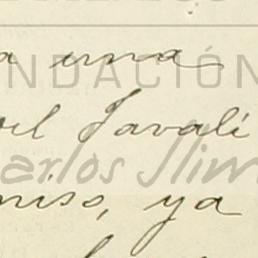 a una
FUNDACIÓN
el Javali
Carlos Slim
miso, ya